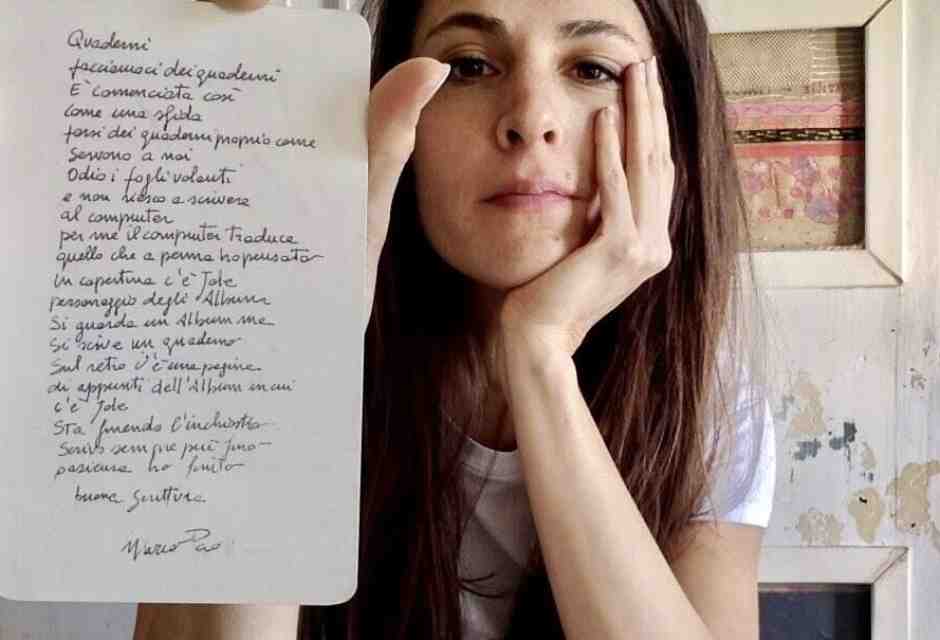 Quaderni
facciamoci dei quaderni
E' cominciata così
come una sfida
farsi dei quaderni proprio come
servono a noi
Odio i fogli volanti
e non riesco a scrivere
al computer
per me il computer traduce
quello che a penna ho pensato
In copertina c'è Jole
personaggio degli Album
Si guarda un Album ma
Si scrive un quaderno
Sul retro c'è una pagina
di appunti dell'Album in cui
c'è Jole
Sta finendo l'inchiostro
Scrivo sempre più fino
pasienza ho finito
buona scrittura